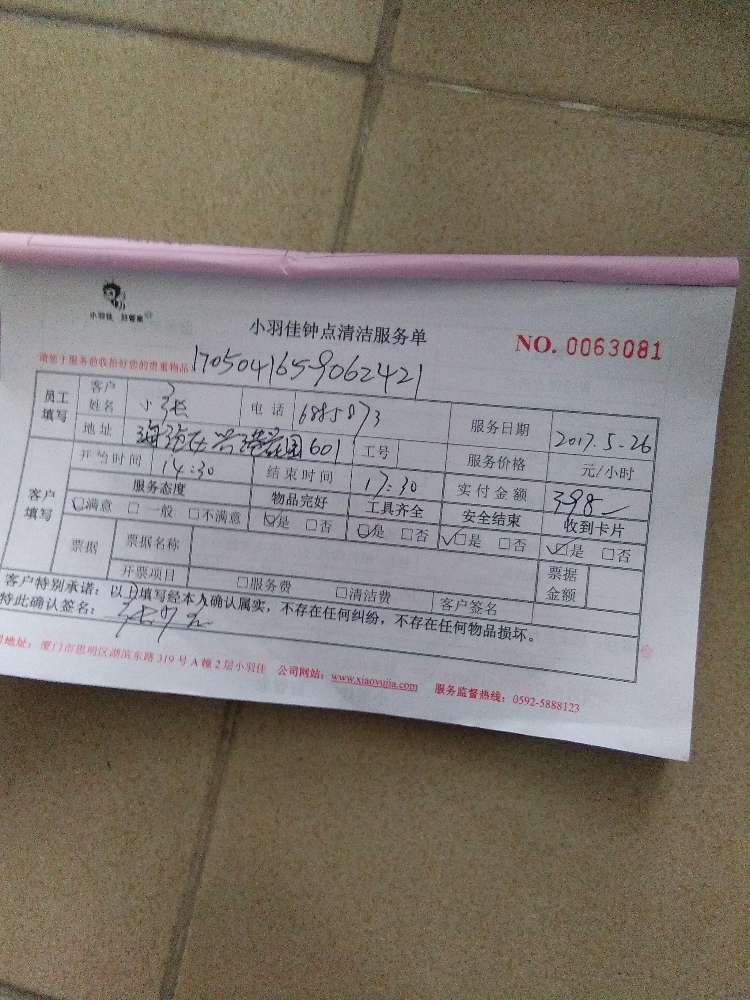 小羽佳 好管家
小羽佳钟点清洁服务单
NO. 0063081
请您于服务前收拾好您的贵重物品
1705041659062421
员工填写 客户姓名 小张 电话 6885873 服务日期 2017.5-26
地址 海沧区兴港花园601 工号 服务价格 元/小时
客户填写 开始时间 14:30 结束时间 17:30 实付金额 398
服务态度 物品完好 工具齐全 安全结束 收到卡片
☑满意 □一般 □不满意 ☑是 □否 ☑是 □否 ☑是 □否 ☑是 □否
票据 票据名称 票据金额
开票项目 □服务费 □清洁费 客户签名
客户特别承诺：以上填写经本人确认属实，不存在任何纠纷，不存在任何物品损坏。
特此确认签名：
地址：厦门市思明区湖滨东路319号A幢2层小羽佳 公司网站：www.xiaoyujia.com 服务监督热线：0592-5888123